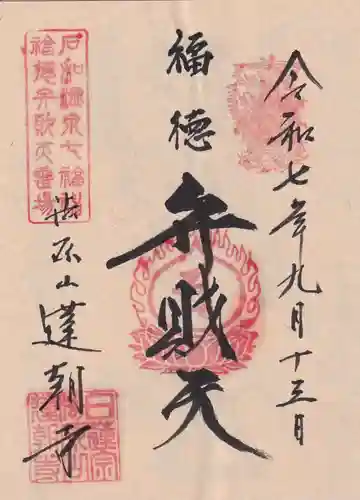 令和七年九月十三日
福徳
弁財天
蓮朝寺
石和温泉七福神
福徳弁財天霊場
日蓮宗